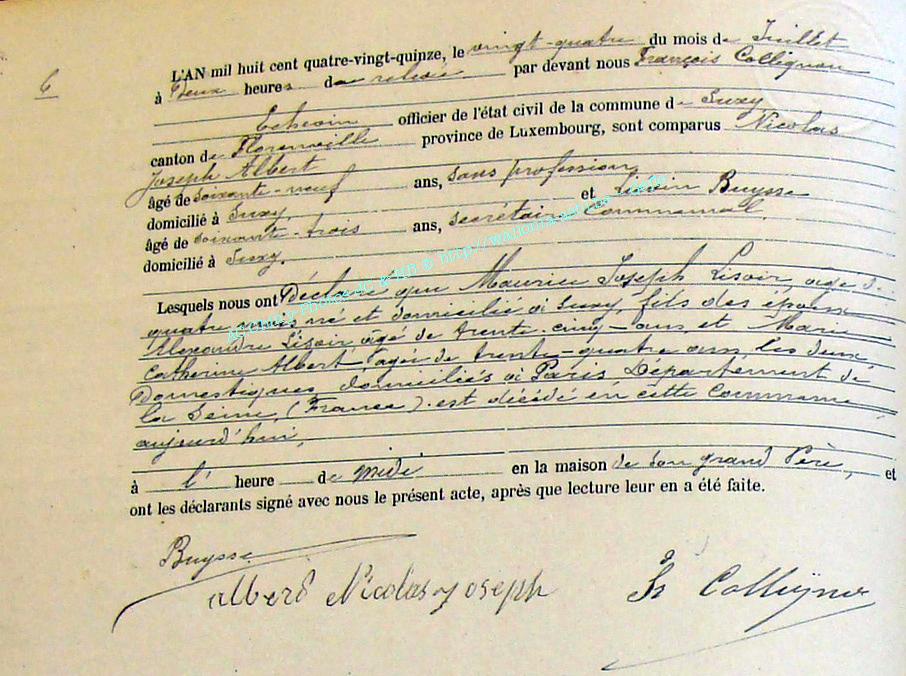 6
L'AN mil huit cent quatre-vingt-quinze, le vingt-quatre du mois de Juillet
à Deux heures de relevée par devant nous François Collignon
Echevin officier de l'état civil de la commune de Suxy
canton de Florenville province de Luxembourg, sont comparus Nicolas
Joseph Albert
âgé de soixante-neuf ans, sans profession,
domicilié à Suxy, et Livin Buysse
âgé de soixante-trois ans, secrétaire Communal,
domicilié à Suxy.
Lesquels nous ont Déclaré que Maurice Joseph Lisoir, âgé de
quatre mois né et domicilié à Suxy, fils des époux
Alexandre Lisoir âgé de trente-cinq ans, et Marie
Catherine Albert, âgée de trente-quatre ans, les deux
Domestiques domiciliés à Paris Département de
la Seine, (France) est décédé en cette Commune,
aujourd'hui,
à l' heure de midi en la maison de son grand Père, et
ont les déclarants signé avec nous le présent acte, après que lecture leur en a été faite.
Buysse
albert Nicolas joseph
Fs Collignon